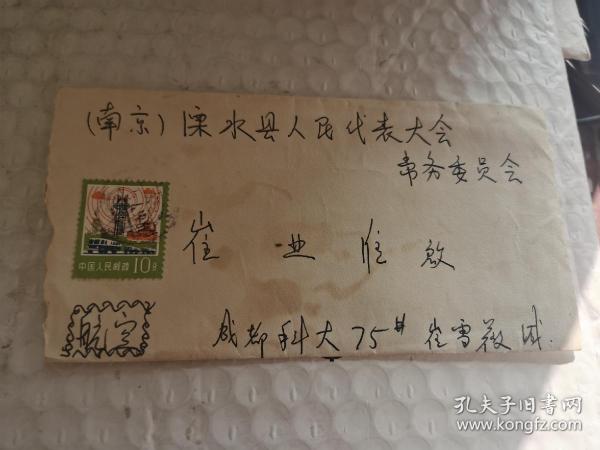 (南京) 溧水县人民代表大会
常务委员会
崔业胜啟
中国人民邮政 10分
航空
成都科大75# 崔雪薇缄.
孔夫子旧书网
www.kongfz.com